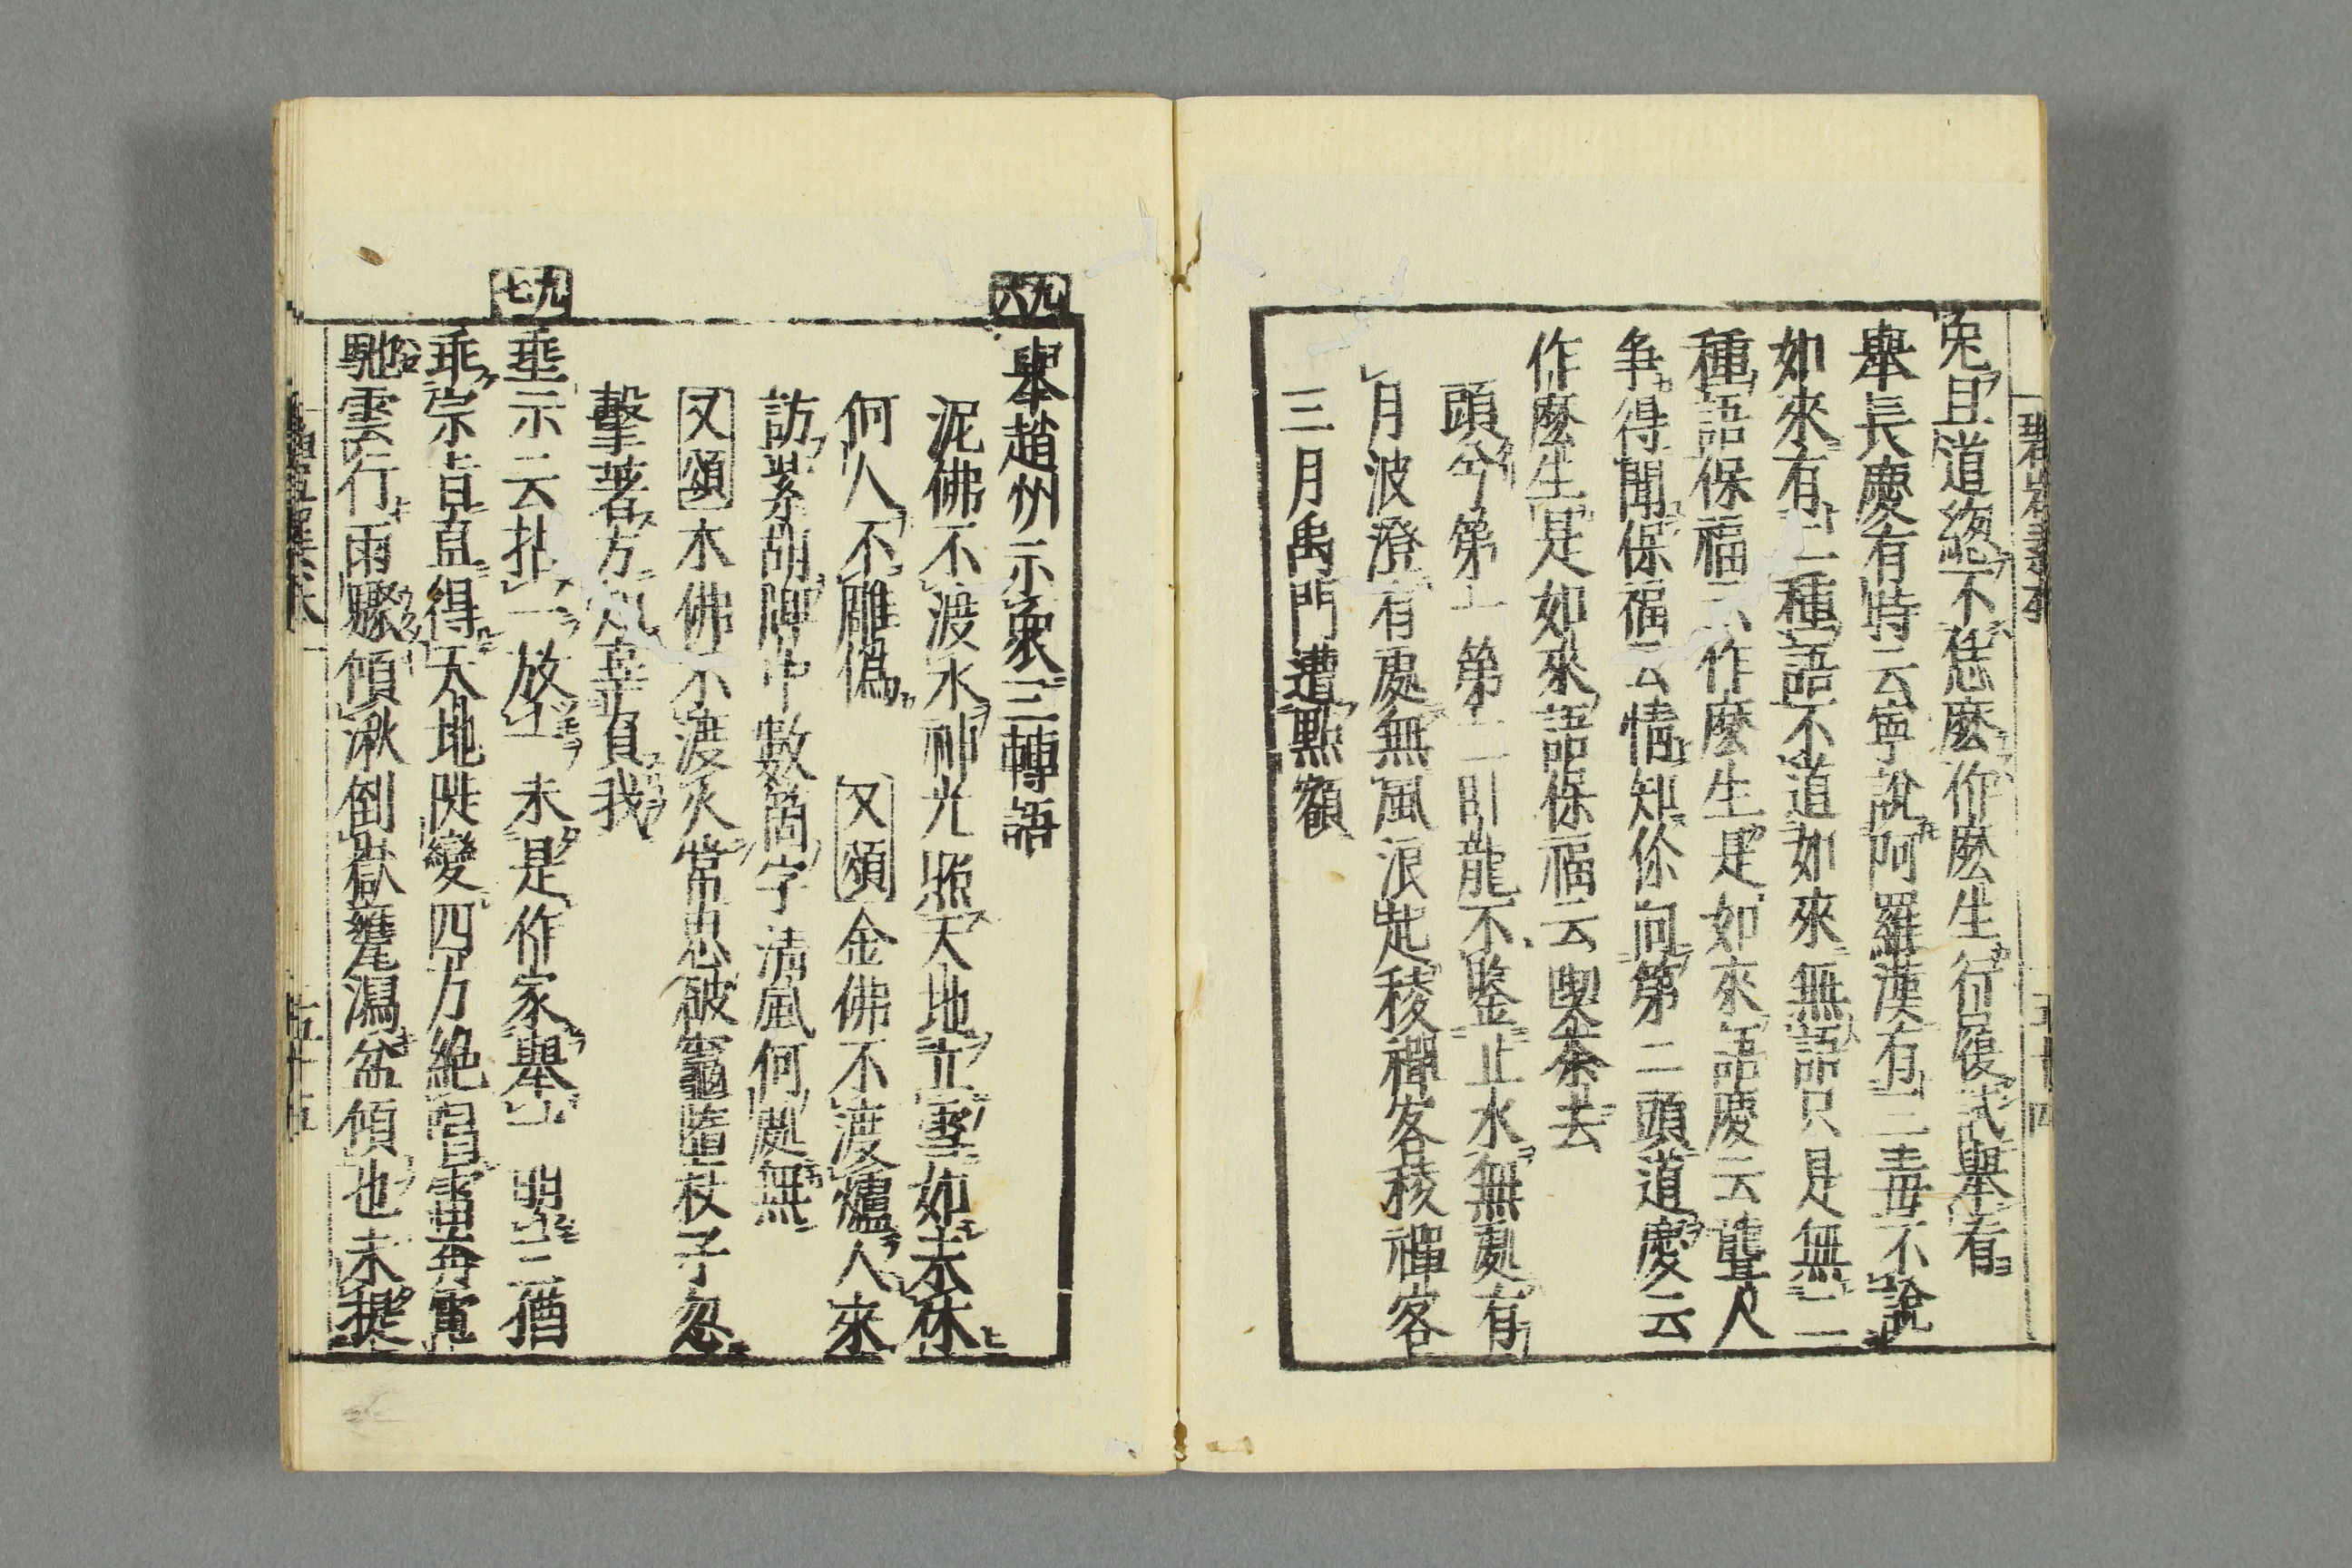 碧巖集本
五十四
兔且道總不恁麽作麽生行履試舉看
舉長慶有時云寧說阿羅漢有三毒不說
如來有二種語不道如來無語只是無二
種語保福云作麽生是如來語慶云聾人
争得聞保福云情知你向第二頭道慶云
作麽生是如來語保福云喫茶去
頭兮第一第二臥龍不鑒止水無處有
月波澄有處無風浪起稜禪客稜禪客
三月禹門遭點額
九六
舉趙州示衆三轉語
泥佛不渡水神光照天地立雪如未休
何人不雕偽 又頌 金佛不渡爐人來
訪紫胡牌中數箇字清風何處無
又頌 木佛不渡火常思破竈墮杖子忽
擊著方知辜負我
九七
垂示云拈一放一未是作家舉一明三猶
乖宗旨直得天地陡變四方絶唱雷奔電
馳雲行雨驟傾湫倒嶽甕瀉盆傾也未提
五十五